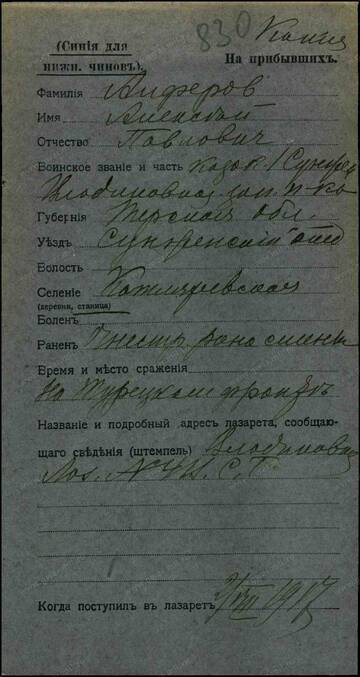 830 Копия
(Синія для
нижн. чиновъ).
На прибывшихъ.
Фамилія Алферов
Имя Алексѣй
Отчество Павлович
Воинское званіе и часть казак 1 Сунж
Владикавказ
Губернія Терской обл.
Уѣздъ Сунженскій отд
Волость
Селеніе
(деревня, станица)
Боленъ
Раненъ рана спины
Время и мѣсто сраженія
на Турецком фронтѣ
Названіе и подробный адресъ лазарета, сообщаю-
щаго свѣдѣнія (штемпель) Владикавказ
Лаз. С. Г.
Когда поступилъ въ лазаретъ 2/VIII 1917